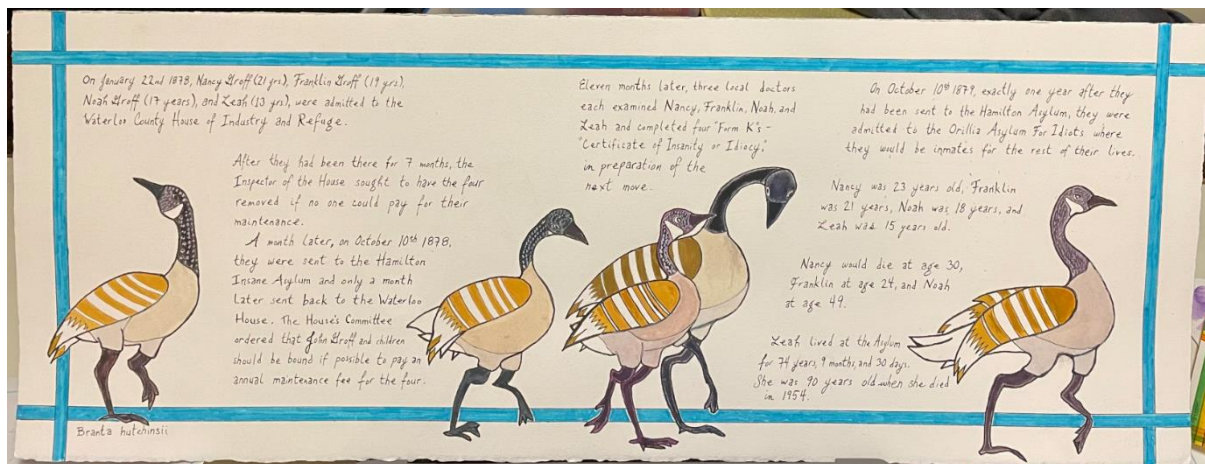 On January 22nd 1878, Nancy Groff (21 yrs), Franklin Groff (19 yrs),
Noah Groff (17 years), and Leah (13 yrs), were admitted to the
Waterloo County House of Industry and Refuge.
After they had been there for 7 months, the
Inspector of the House sought to have the four
removed if no one could pay for their
maintenance.
A month later, on October 10th 1878,
they were sent to the Hamilton
Insane Asylum and only a month
later sent back to the Waterloo
House. The House's Committee
ordered that John Groff and children
should be bound if possible to pay an
annual maintenance fee for the four.
Branta hutchinsii
Eleven months later, three local doctors
each examined Nancy, Franklin, Noah, and
Leah and completed four "Form K"s -
"Certificate of Insanity or Idiocy,"
in preparation of the
next move.
On October 10th 1879, exactly one year after they
had been sent to the Hamilton Asylum, they were
admitted to the Orillia Asylum For Idiots where
they would be inmates for the rest of their lives.
Nancy was 23 years old, Franklin
was 21 years, Noah was 18 years, and
Leah was 15 years old.
Nancy would die at age 30,
Franklin at age 24, and Noah
at age 49.
Leah lived at the Asylum
for 74 years, 9 months, and 30 days.
She was 90 years old when she died
in 1954.